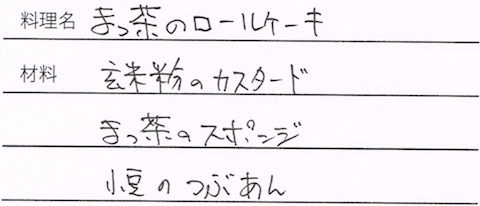 料理名 まっ茶のロールケーキ
材料 玄米粉のカスタード
まっ茶のスポンジ
小豆のつぶあん